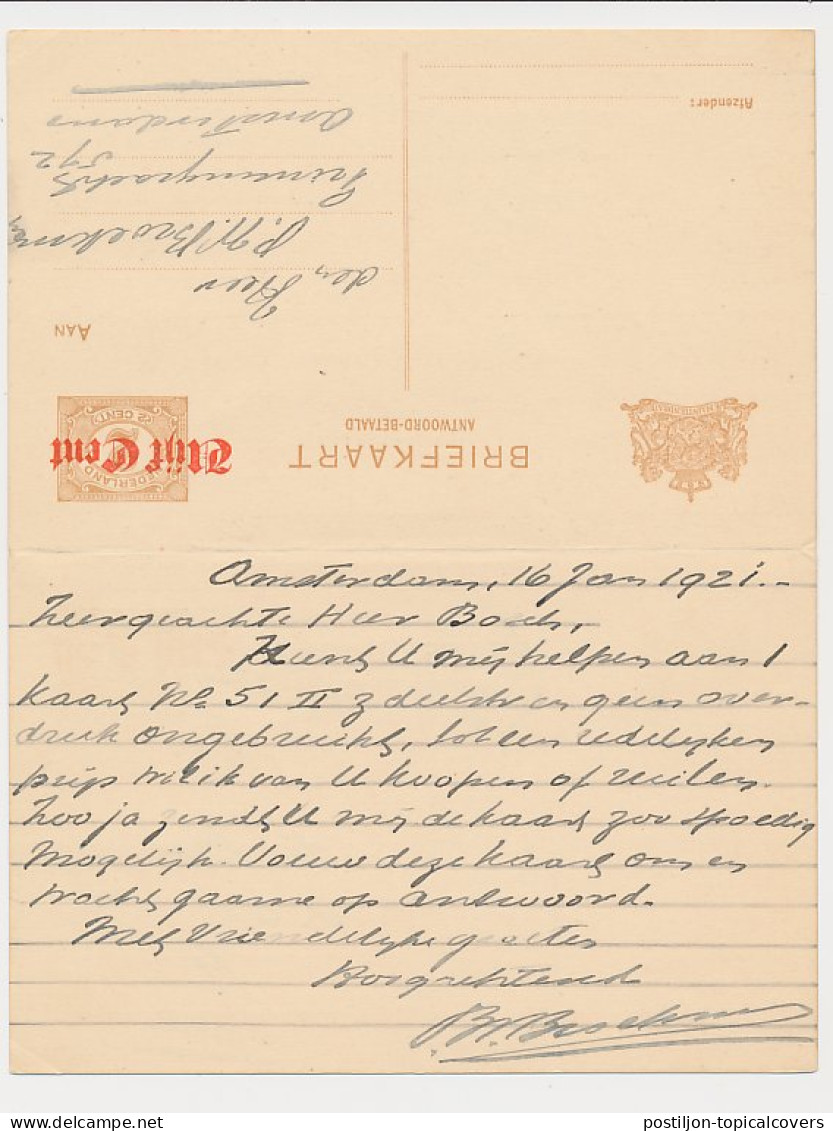 Afzender:
AAN
den Heer
P. W. Broekman
Prinsengracht
592
Amsterdam
BRIEFKAART
ANTWOORD-BETAALD
NEDERLAND
2½ CENT
Vijf Cent
JE MAINTIENDRAI
Amsterdam, 16 Jan 1921.-
Zeergeachte Heer Boesch,
Kunt U mij helpen aan 1
kaart No. 51 II z deelstr en geen over-
druk ongebruikt, tot een redelijken
prijs wil ik van U koopen of ruilen.
Zoo ja zendt U mij de kaart zoo spoedig
mogelijk. Vouw deze kaart om en
wacht gaarne op antwoord.
Met vriendelijke groeten
Hoogachtend
P. W. Broekman
delcampe.net
postiljon-topicalcovers